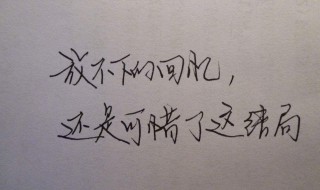 放不下的回忆，
还是可惜了这结局